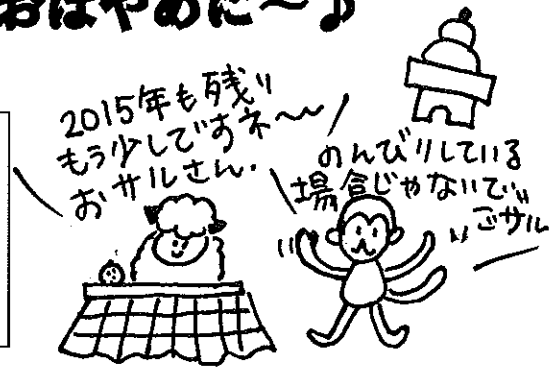 おはやめに〜♪
2015年も残り
もう少しですネ〜
おサルさん.
のんびりしている
場合じゃないで
ごサル